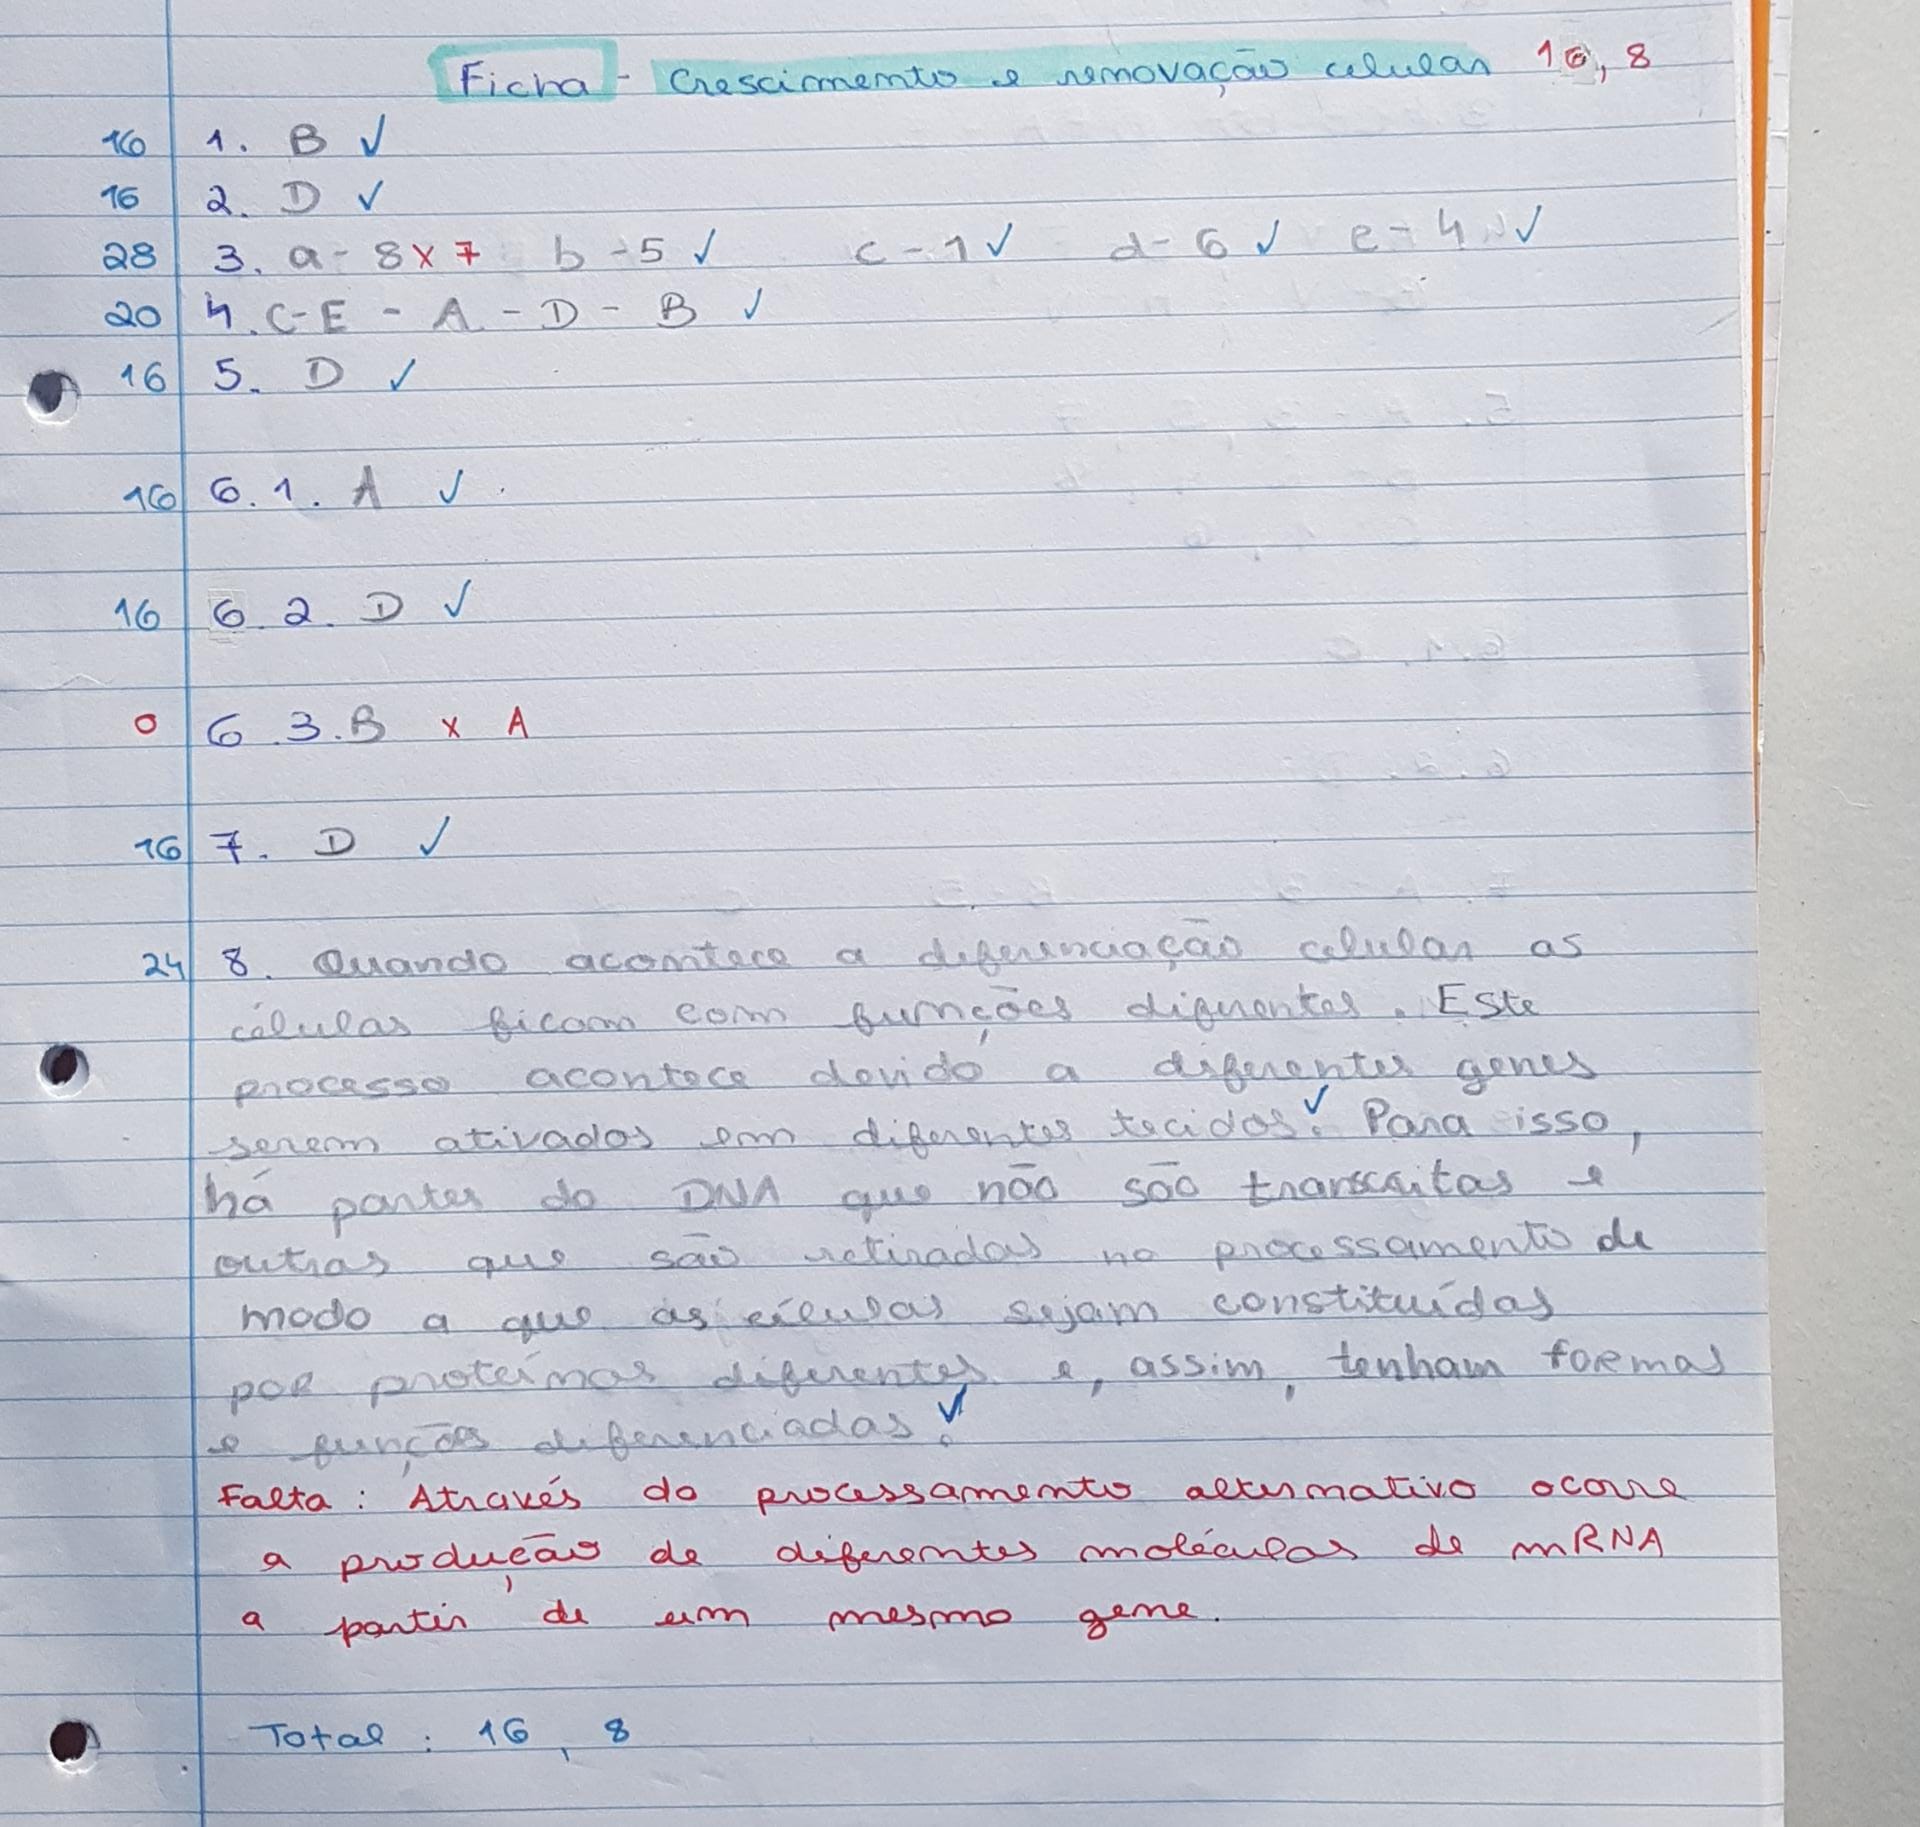 Ficha - Crescimento e renovação celular 16,8
16 1. B ✓
16 2. D ✓
28 3. a - 8 x 7 b - 5 ✓ c - 1 ✓ d - 6 ✓ e - 4 ✓
20 4. C - E - A - D - B ✓
16 5. D ✓
16 6.1. A ✓
16 6.2. D ✓
0 6.3. B x A
16 7. D ✓
24 8. Quando acontece a diferenciação celular as
células ficam com funções diferentes. Este
processo acontece devido a diferentes genes
serem ativados em diferentes tecidos. ✓ Para isso,
há partes do DNA que não são transcritas e
outras que são retiradas no processamento de
modo a que as células sejam constituídas
por proteínas diferentes e, assim, tenham formas
e funções diferenciadas. ✓
Falta : Através do processamento alternativo ocorre
a produção de diferentes moléculas de mRNA
a partir de um mesmo gene.
Total : 16,8